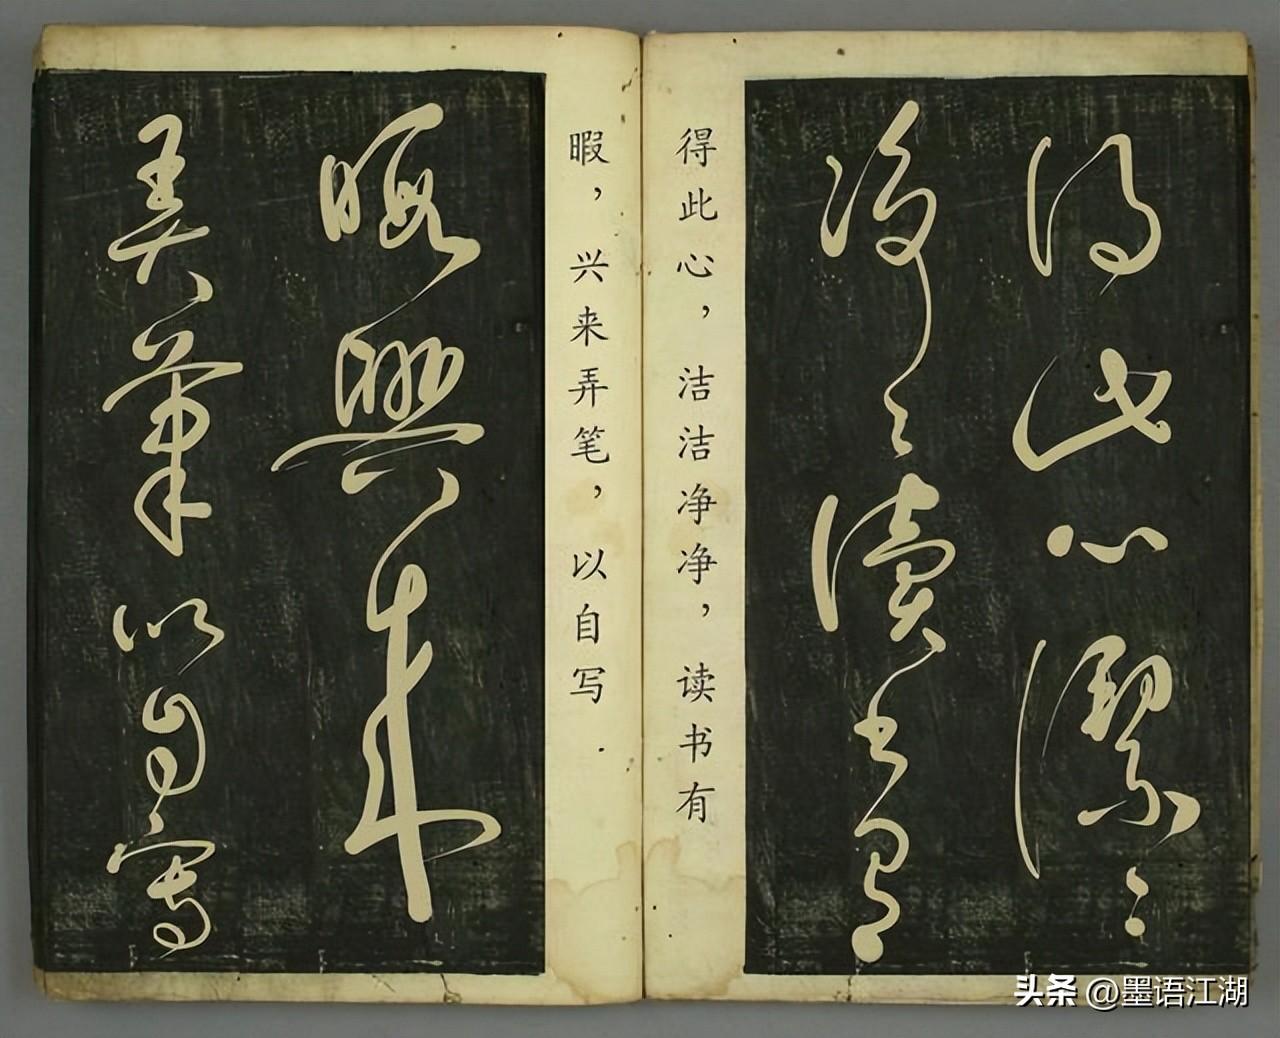 得此心潔〻
淨〻讀書有
得此心，洁洁净净，读书有
暇，兴来弄笔，以自写
暇興來
弄筆以自寫
头条 @墨语江湖